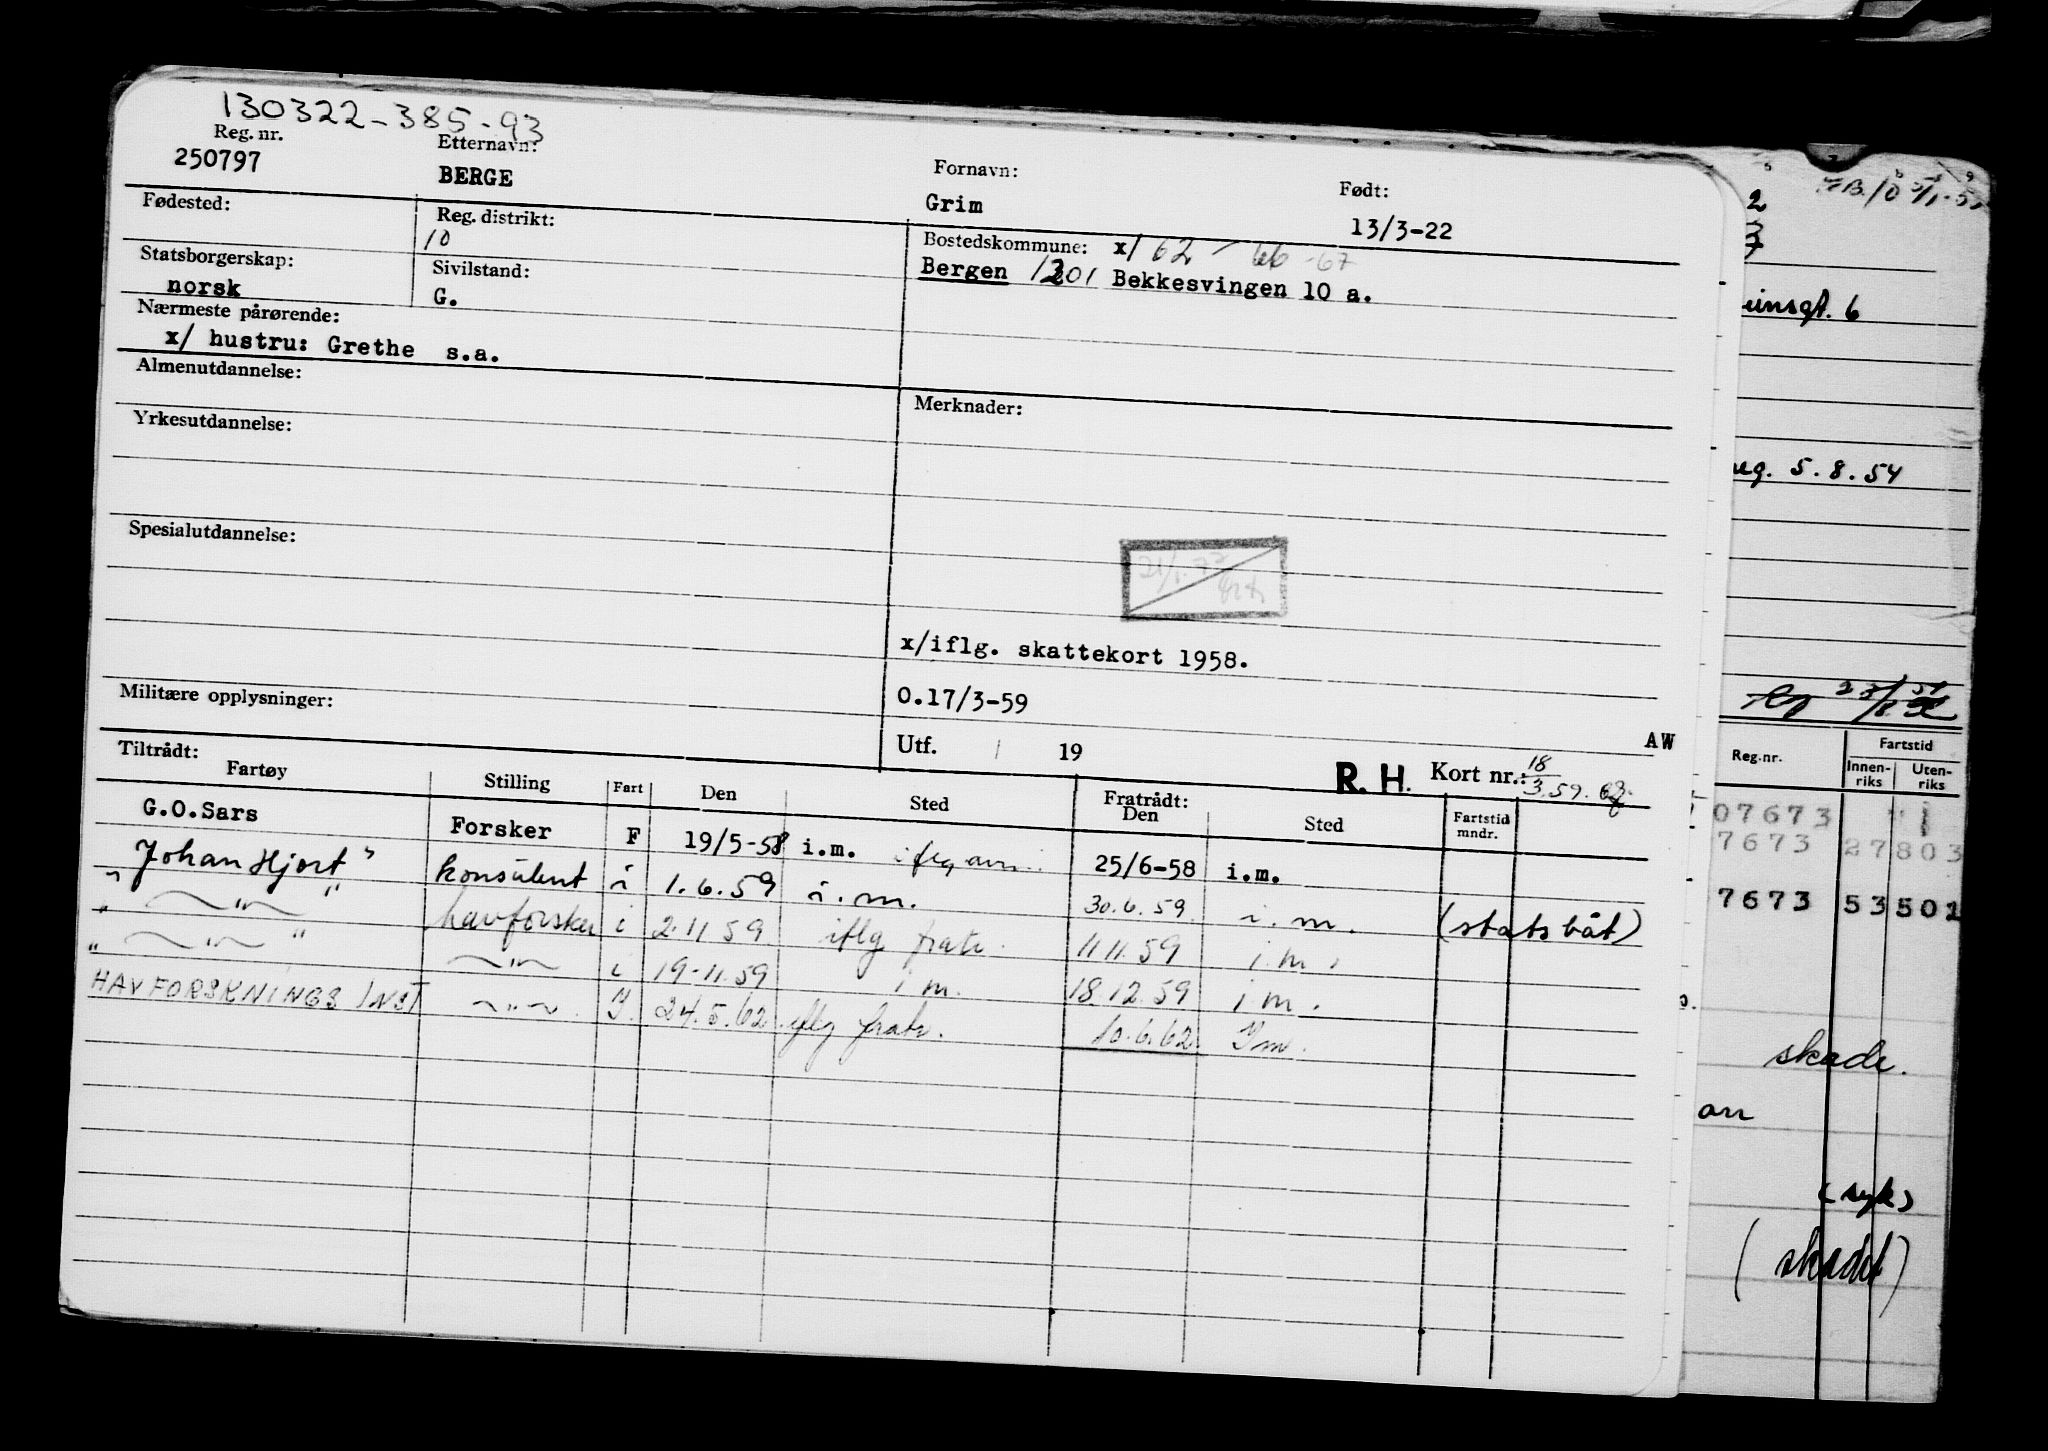 130322-385-93
Reg. nr. Etternavn: Fornavn: Født:
250797 BERGE Grim 13/3-22
Fødested: Reg. distrikt: Bostedskommune: x/ 62 - 66 -67
10
Statsborgerskap: Sivilstand: Bergen 1301 Bekkesvingen 10 a.
norsk G.
Nærmeste pårørende:
x/ hustru: Grethe s.a.
Almenutdannelse: Merknader:
Yrkesutdannelse:
Spesialutdannelse:
x/iflg. skattekort 1958.
Militære opplysninger: O.17/3-59
Utf. 19 AW
R. H. Kort nr.: 18/3.59.
Tiltrådt: Fratrådt:
Fartøy Stilling Fart Den Sted Den Sted Fartstid mndr.
G.O.Sars Forsker F 19/5-58 i.m. 25/6-58 i.m.
"Johan Hjort" konsulent i 1.6.59 i.m. 30.6.59 i.m. (statsbåt)
" — " — " havforsker i 2.11 59 iflg fratr. 11 11. 59 i.m.
" — " — " — " — i 19-11.59 i m. 18.12.59 i m.
HAVFORSKNINGS INST — " — . 24.5.62 iflg fratr. 10.6.62
2
insgt. 6
5.8.54
Reg.nr. Fartstid
Innen-riks Uten-riks
07673
7673 27803
7673 53501
skade.
an
(syk)
(skadet)